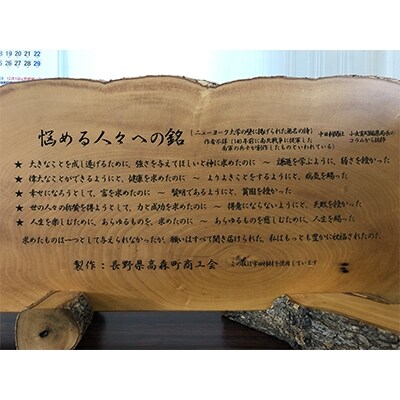 8 19 20 21 22
5 26 27 28 29
悩める人々への銘
[ニューヨーク大学の壁に掲げられた無名の詩]
作者不詳(140年前に南北戦争に従軍した
南軍の兵士が制作したものといわれている)
中日新聞社
コラムから抜粋
★ 大きなことを成し遂げるために、強さを与えてほしいと神に求めたのに ~ 謙遜を学ぶように、弱さを授かった
★ 偉大なことができるようにと、健康を求めたのに ~ よりよきことをするようにと、病気を賜った
★ 幸せになろうとして、富を求めたのに ~ 賢明であるようにと、貧困を授かった
★ 世の人々の称賛を得ようとして、力と成功を求めたのに ~ 得意にならないようにと、失敗を授かった
★ 人生を楽しむために、あらゆるものを、求めたのに ~ あらゆるものを慈しむために、人生を賜った
求めたものは一つとして与えられなかったが、願いはすべて聞き届けられた、私はもっとも豊かに祝福されたのだ。
製作:長野県高森町商工会